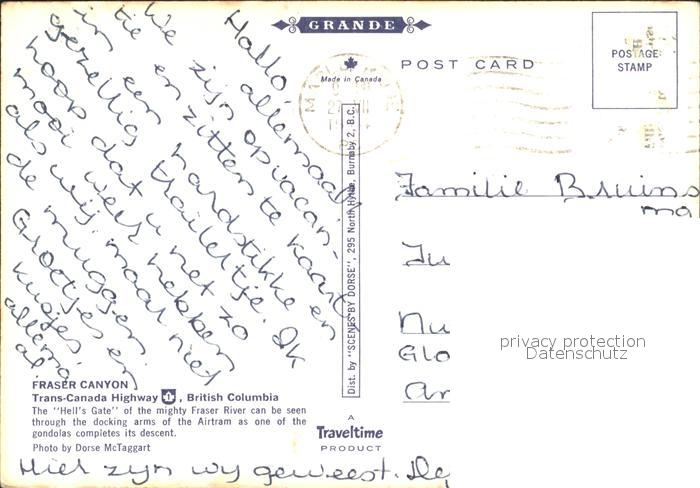 GRANDE
Made in Canada
POST CARD
POSTAGE
STAMP
Hallo, allemaal,
We zijn op vacan-
tie en zitten te kaarten
in een hardstikke
gezellig trailertje. Ik
hoop dat u net zo
mooi weer hebben
als wij maar niet
de muggen.
Groetjes en
kusjes
allema
al.
Familie Bruins
ma
Ju
Nu
Glo
Ar
privacy protection
Datenschutz
Dist. by "SCENES BY DORSE", 295 North Hythe, Burnaby 2, B.C.
FRASER CANYON
Trans-Canada Highway 1, British Columbia
The "Hell's Gate" of the mighty Fraser River can be seen
through the docking arms of the Airtram as one of the
gondolas completes its descent.
Photo by Dorse McTaggart
A
Traveltime
PRODUCT
Hier zyn wy geweest.